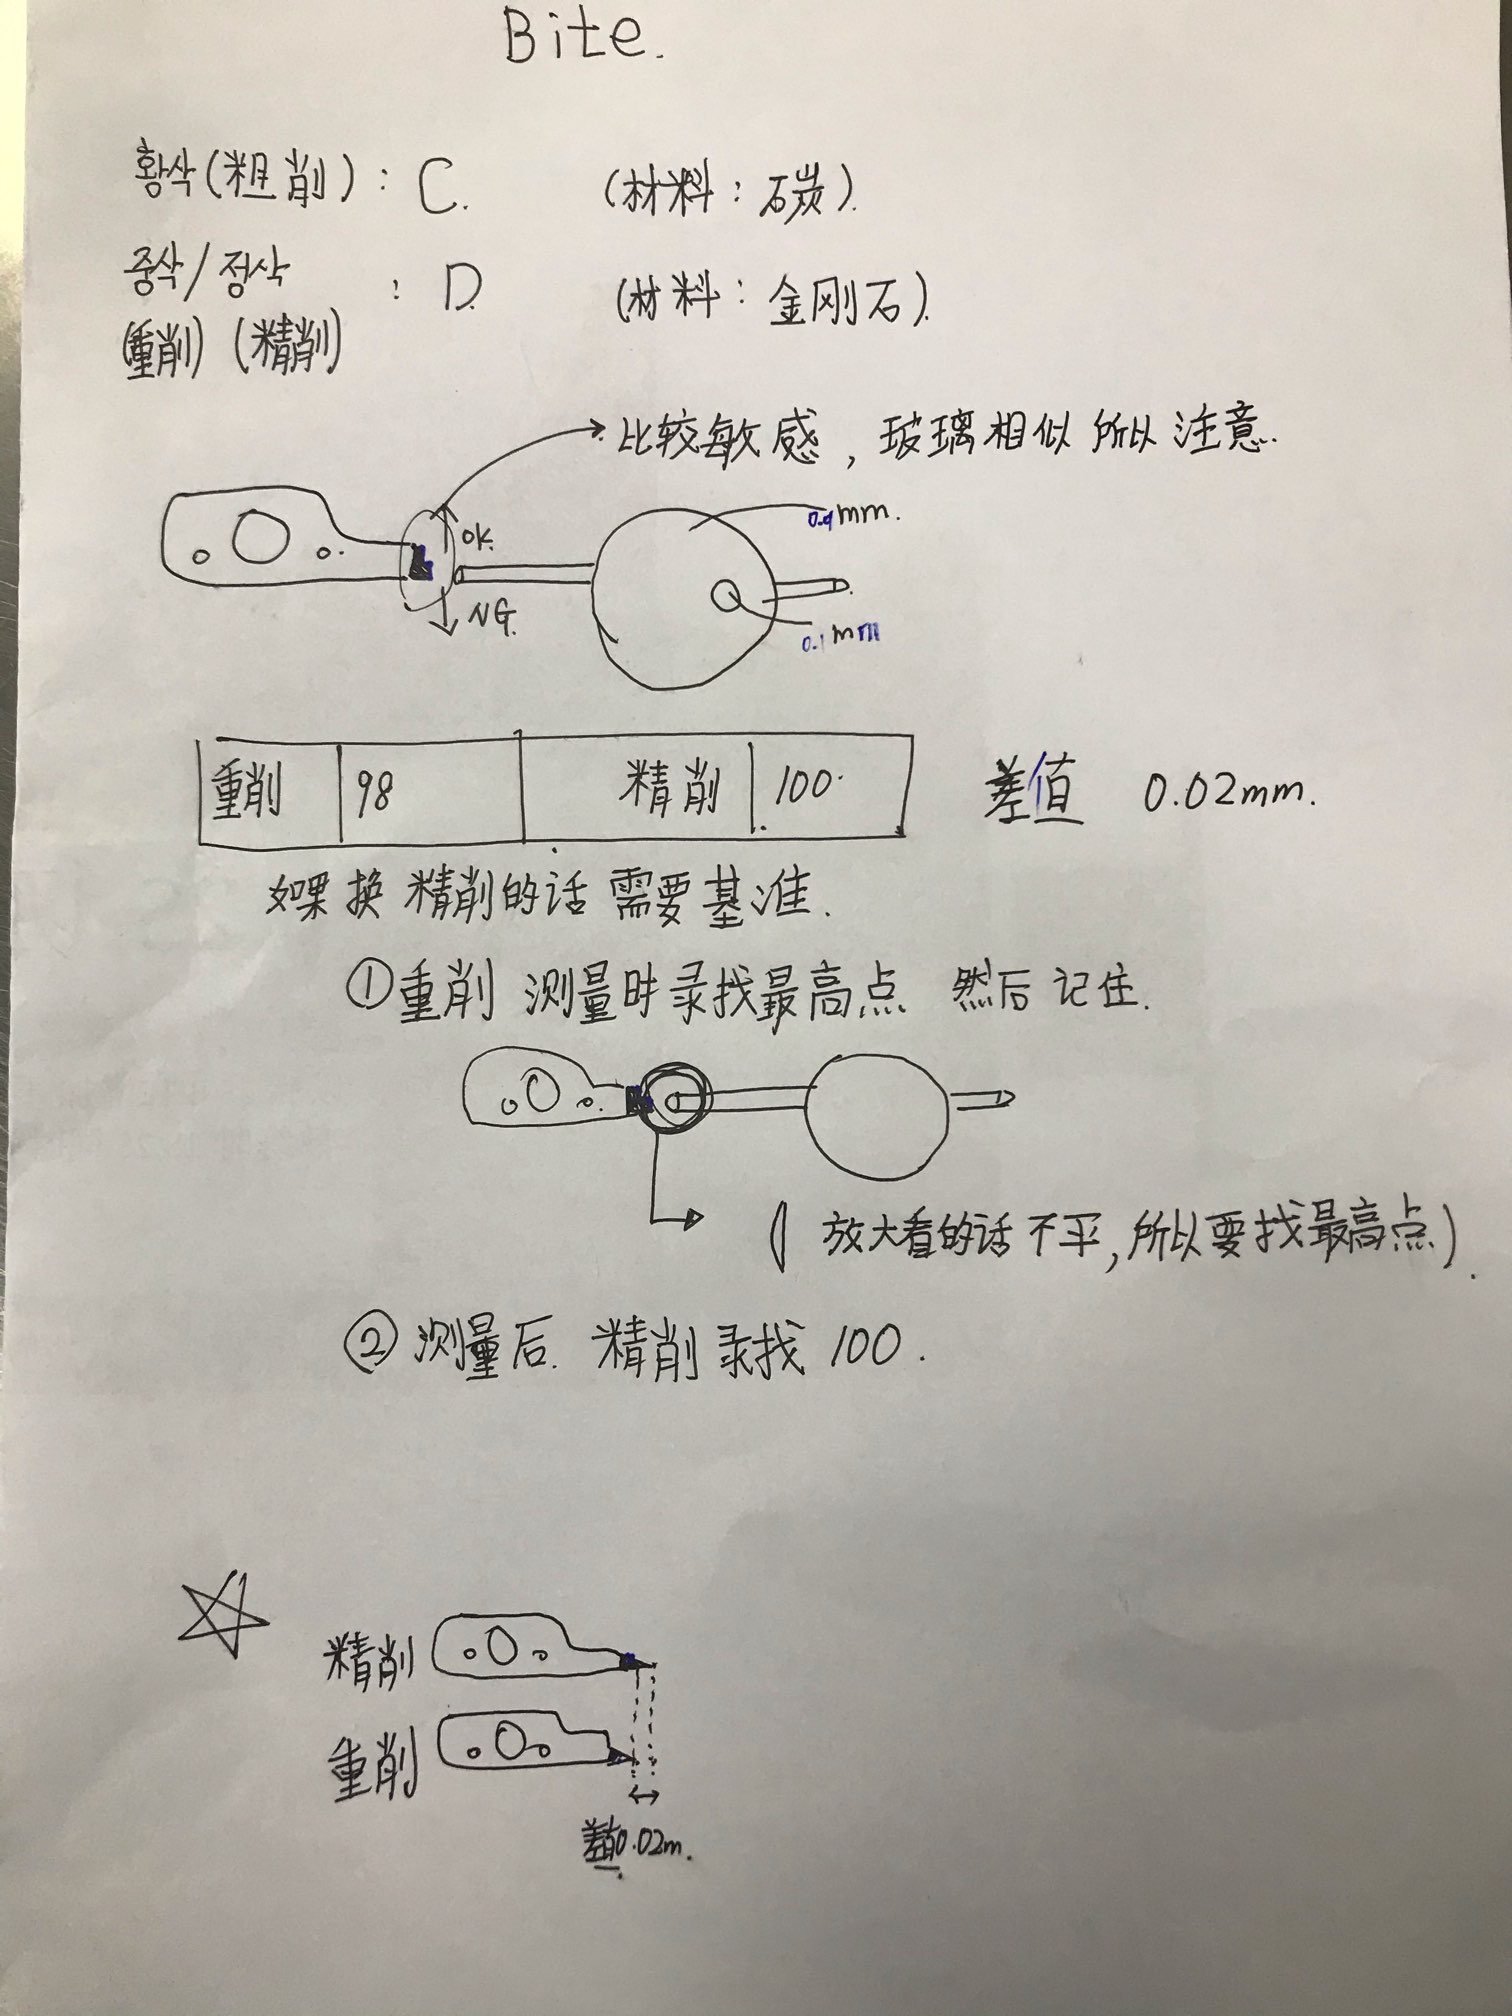 Bite.
황삭(粗削) : C. (材料 : 石炭).
중삭/정삭 : D. (材料 : 金刚石).
(重削) (精削)
比较敏感, 玻璃相似 所以 注意.
OK.
NG.
mm.
0.1mm
重削 98 精削 100 差值 0.02mm.
如果 换 精削的话 需要基准.
① 重削 测量时录找最高点 然后 记住.
( 放大看的话 不平, 所以要找最高点).
② 测量后. 精削 录找 100.
精削
重削
差值0.02m.